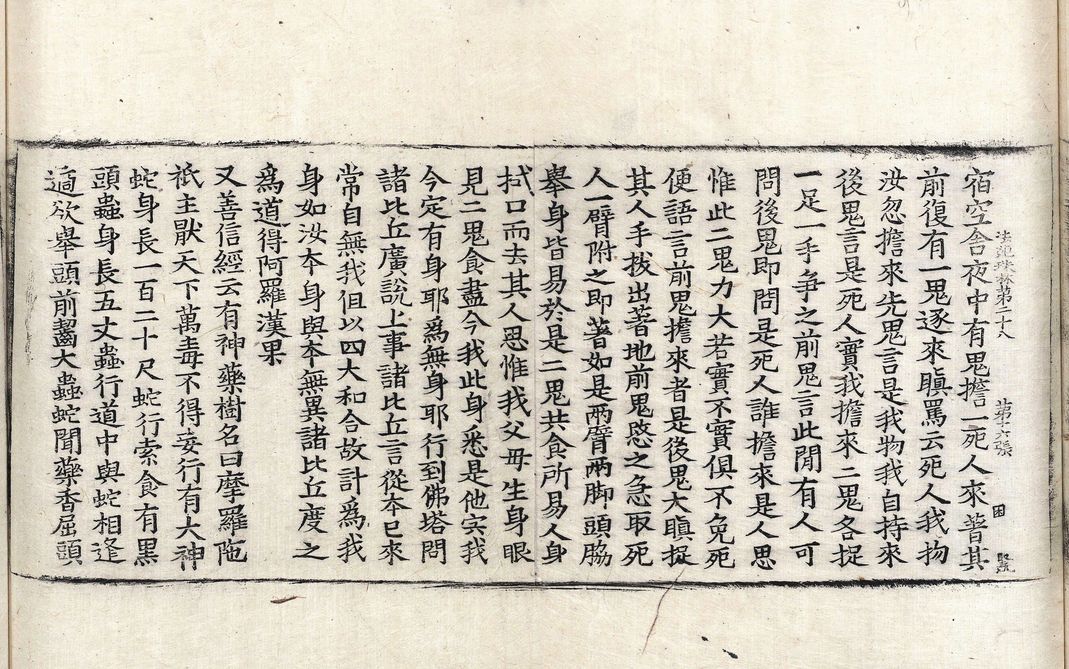 法苑珠林第二十八 第六張 困
宿空舍夜中有鬼擔一死人來著其
前復有一鬼逐來瞋罵云死人我物
汝忽擔來先鬼言是我物我自持來
後鬼言是死人實我擔來二鬼各捉
一足一手爭之前鬼言此閒有人可
問後鬼即問是死人誰擔來是人思
惟此二鬼力大若實不實俱不免死
便語言前鬼擔來者是後鬼大瞋捉
其人手拔出著地前鬼愍之急取死
人一臂附之即著如是兩臂兩脚頭脇
舉身皆易於是二鬼共食所易人身
拭口而去其人思惟我父母生身眼
見二鬼食盡今我此身悉是他宍我
今定有身耶爲無身耶行到佛塔問
諸比丘廣說上事諸比丘言從本已來
常自無我但以四大和合故計爲我
身如汝本身與本無異諸比丘度之
爲道得阿羅漢果
又善信經云有神藥樹名曰摩羅陁
祇主猒天下萬毒不得妄行有大神
蛇身長一百二十尺蛇行索食有黑
頭蟲身長五丈蟲行道中與蛇相逢
適欲舉頭前齧大蟲蛇聞藥香屈頭